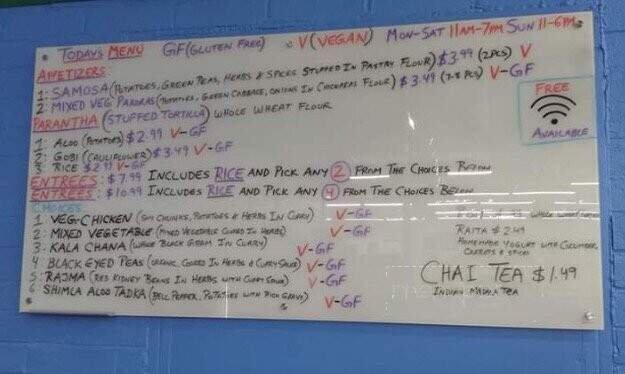 TODAYS MENU GF (GLUTEN FREE) V (VEGAN) MON-SAT 11AM-7PM SUN 11-6PM
APPETIZERS
1: SAMOSA (POTATOES, GREEN PEAS, HERBS & SPICES STUFFED IN PASTRY FLOUR) $3.99 (2PCS) V
2: MIXED VEG PAKORAS (POTATOES, GREEN CABBAGE, ONIONS IN CHICKPEAS FLOUR) $3.49 (7-8 PCS) V-GF
PARANTHA (STUFFED TORTILLA) WHOLE WHEAT FLOUR
1: ALOO (POTATOES) $2.99 V-GF
2: GOBI (CAULIFLOWER) $3.49 V-GF
3 RICE V-GF
ENTREES: $7.99 INCLUDES RICE AND PICK ANY 2 FROM THE CHOICES BELOW
ENTREES: $10.99 INCLUDES RICE AND PICK ANY 4 FROM THE CHOICES BELOW
CHOICES
1. VEG-CHICKEN (SOY CHUNKS, POTATOES & HERBS IN CURRY) V-GF
2: MIXED VEGETABLE (MIXED VEGETABLE COOKED IN HERBS) V-GF
3- KALA CHANA (WHOLE BLACK GRAM IN CURRY) V-GF
4 BLACK EYED PEAS (COOKED IN HERBS & CURRY SAUCE) V-GF
5: RAJMA (RED KIDNEY BEANS IN HERBS WITH CURRY SAUCE) V-GF
6 SHIMLA ALOO TADKA (BELL PEPPER, POTATOES WITH RICH GRAVY) V-GF
FREE
AVAILABLE
WHOLE
RAITA $2.49
HOMEMADE YOGURT WITH CUCUMBER,
CARROTS & SPICES
CHAI TEA $1.49
INDIAN MASALA TEA